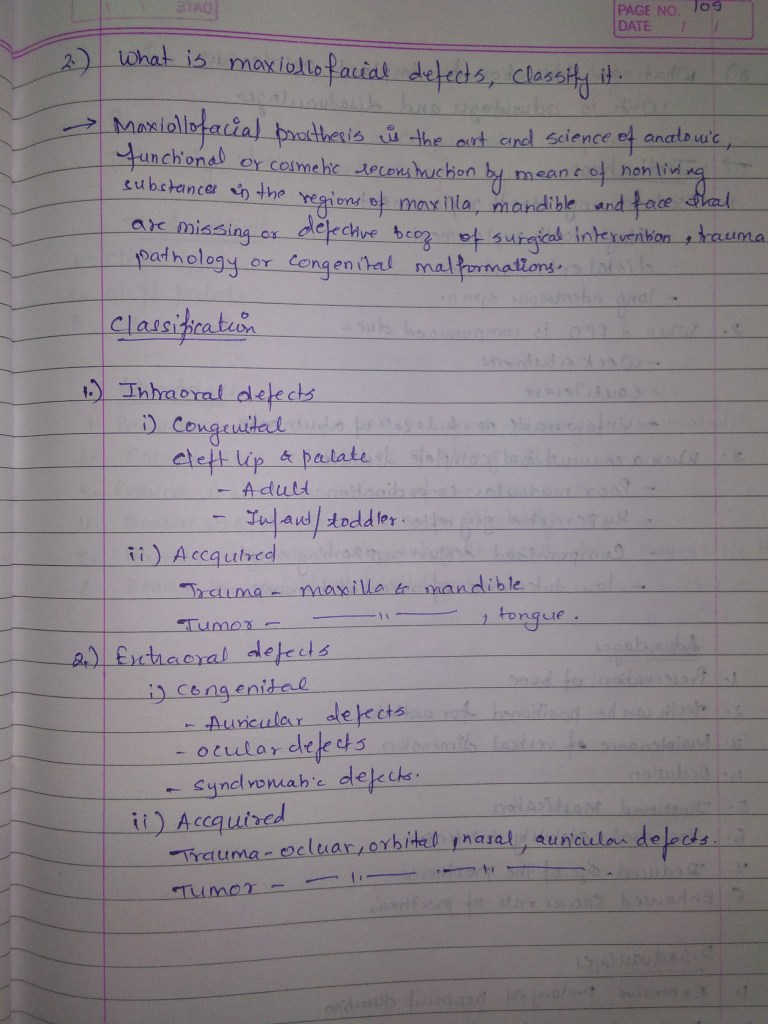 PAGE NO. 109
DATE / /
2.) What is maxiollofacial defects, classify it.
→ Maxiollofacial prosthesis is the art and science of anatomic,
functional or cosmetic reconstruction by means of nonliving
substances in the regions of maxilla, mandible and face that
are missing or defective bcoz of surgical intervention, trauma
pathology or congenital malformations.
Classification
1.) Intraoral defects
i) Congenital
cleft lip & palate
- Adult
- Infant/toddler.
ii) Accquired
Trauma - maxilla & mandible
Tumor - —— " —— , tongue.
2.) Extraoral defects
i) Congenital
- Auricular defects
- ocular defects
- syndromatic defects.
ii) Accquired
Trauma - ocluar, orbital, nasal, auricular defects.
Tumor - — " — — " — .